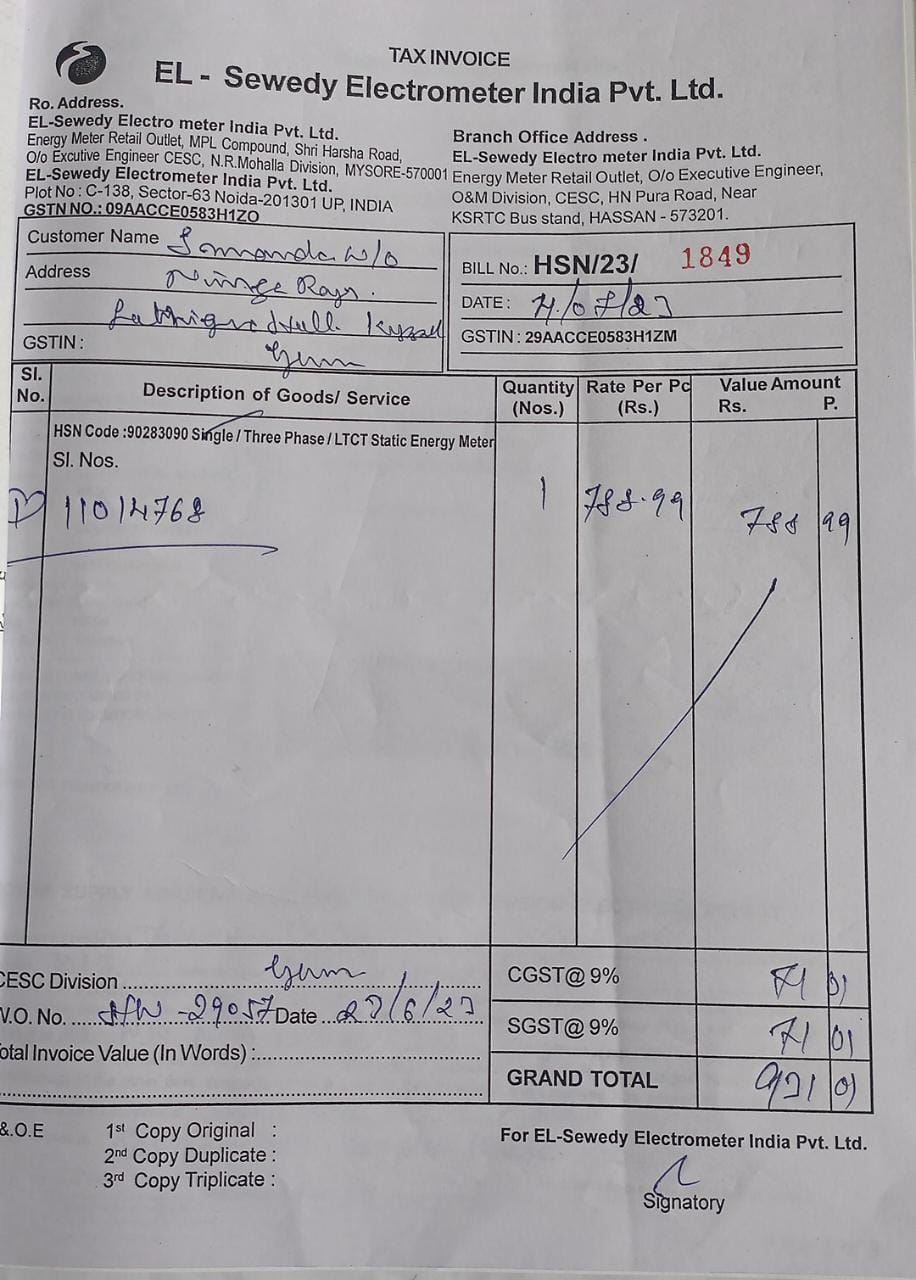 TAX INVOICE
EL - Sewedy Electrometer India Pvt. Ltd.
Ro. Address.
EL-Sewedy Electro meter India Pvt. Ltd.
Energy Meter Retail Outlet, MPL Compound, Shri Harsha Road,
O/o Excutive Engineer CESC, N.R.Mohalla Division, MYSORE-570001
EL-Sewedy Electrometer India Pvt. Ltd.
Plot No : C-138, Sector-63 Noida-201301 UP, INDIA
GSTN NO.: 09AACCE0583H1ZO
Branch Office Address .
EL-Sewedy Electro meter India Pvt. Ltd.
Energy Meter Retail Outlet, O/o Executive Engineer,
O&M Division, CESC, HN Pura Road, Near
KSRTC Bus stand, HASSAN - 573201.
Customer Name w/o
Address
GSTIN :
BILL No.: HSN/23/ 1849
DATE : /07/23
GSTIN : 29AACCE0583H1ZM
Sl. No. Description of Goods/ Service Quantity (Nos.) Rate Per Pc (Rs.) Value Amount Rs. P.
HSN Code :90283090 Single / Three Phase / LTCT Static Energy Meter
Sl. Nos.
1) 11014768 1 788.99 788 99
CESC Division
W.O. No. -29057 Date 27/6/23
Total Invoice Value (In Words) :
CGST@ 9% 71 01
SGST@ 9% 71 01
GRAND TOTAL 931 01
&.O.E
1st Copy Original :
2nd Copy Duplicate :
3rd Copy Triplicate :
For EL-Sewedy Electrometer India Pvt. Ltd.
Signatory